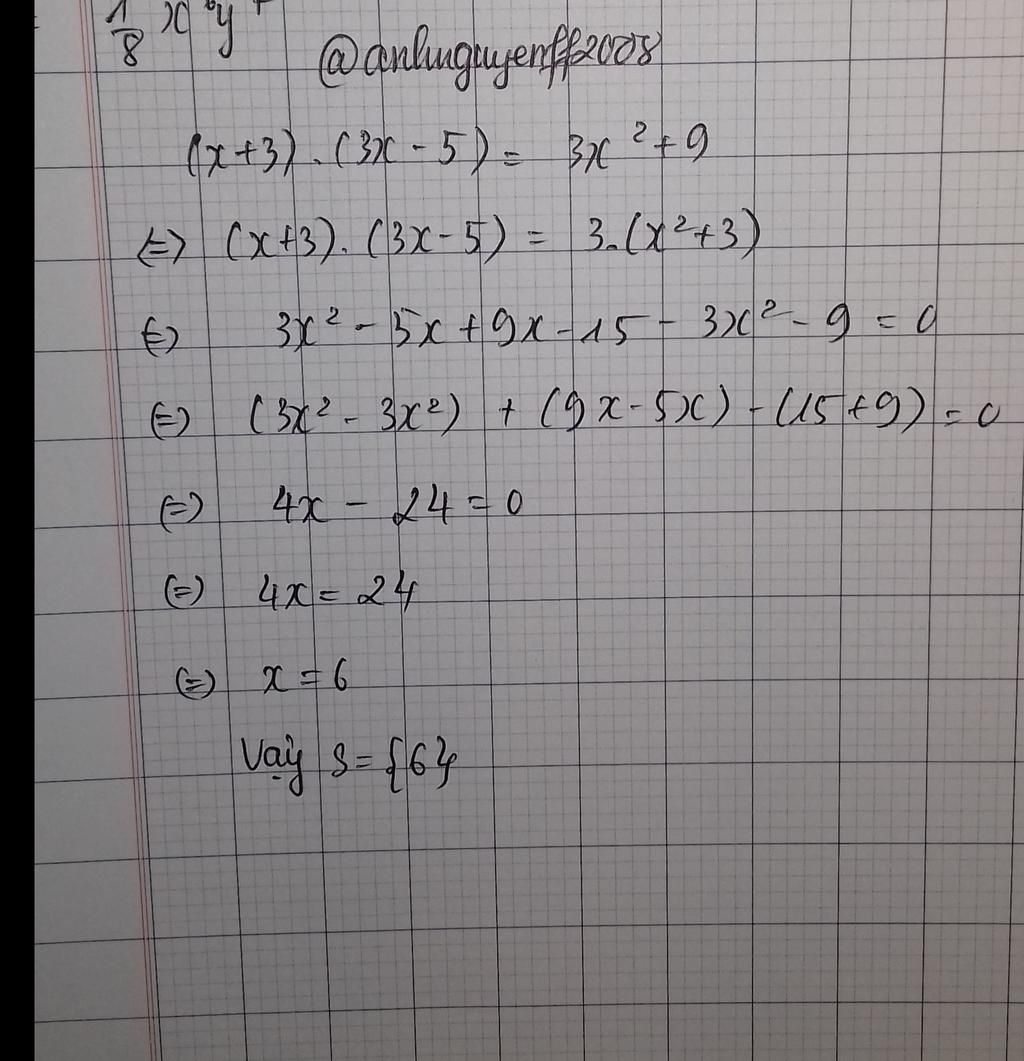 1/8 x y
@anhnguyenff2008
(x+3).(3x-5) = 3x²+9
<=> (x+3).(3x-5) = 3.(x²+3)
<=> 3x²-5x+9x-15-3x²-9=0
<=> (3x²-3x²)+(9x-5x)-(15+9)=0
<=> 4x-24=0
<=> 4x=24
<=> x=6
Vậy S={6}